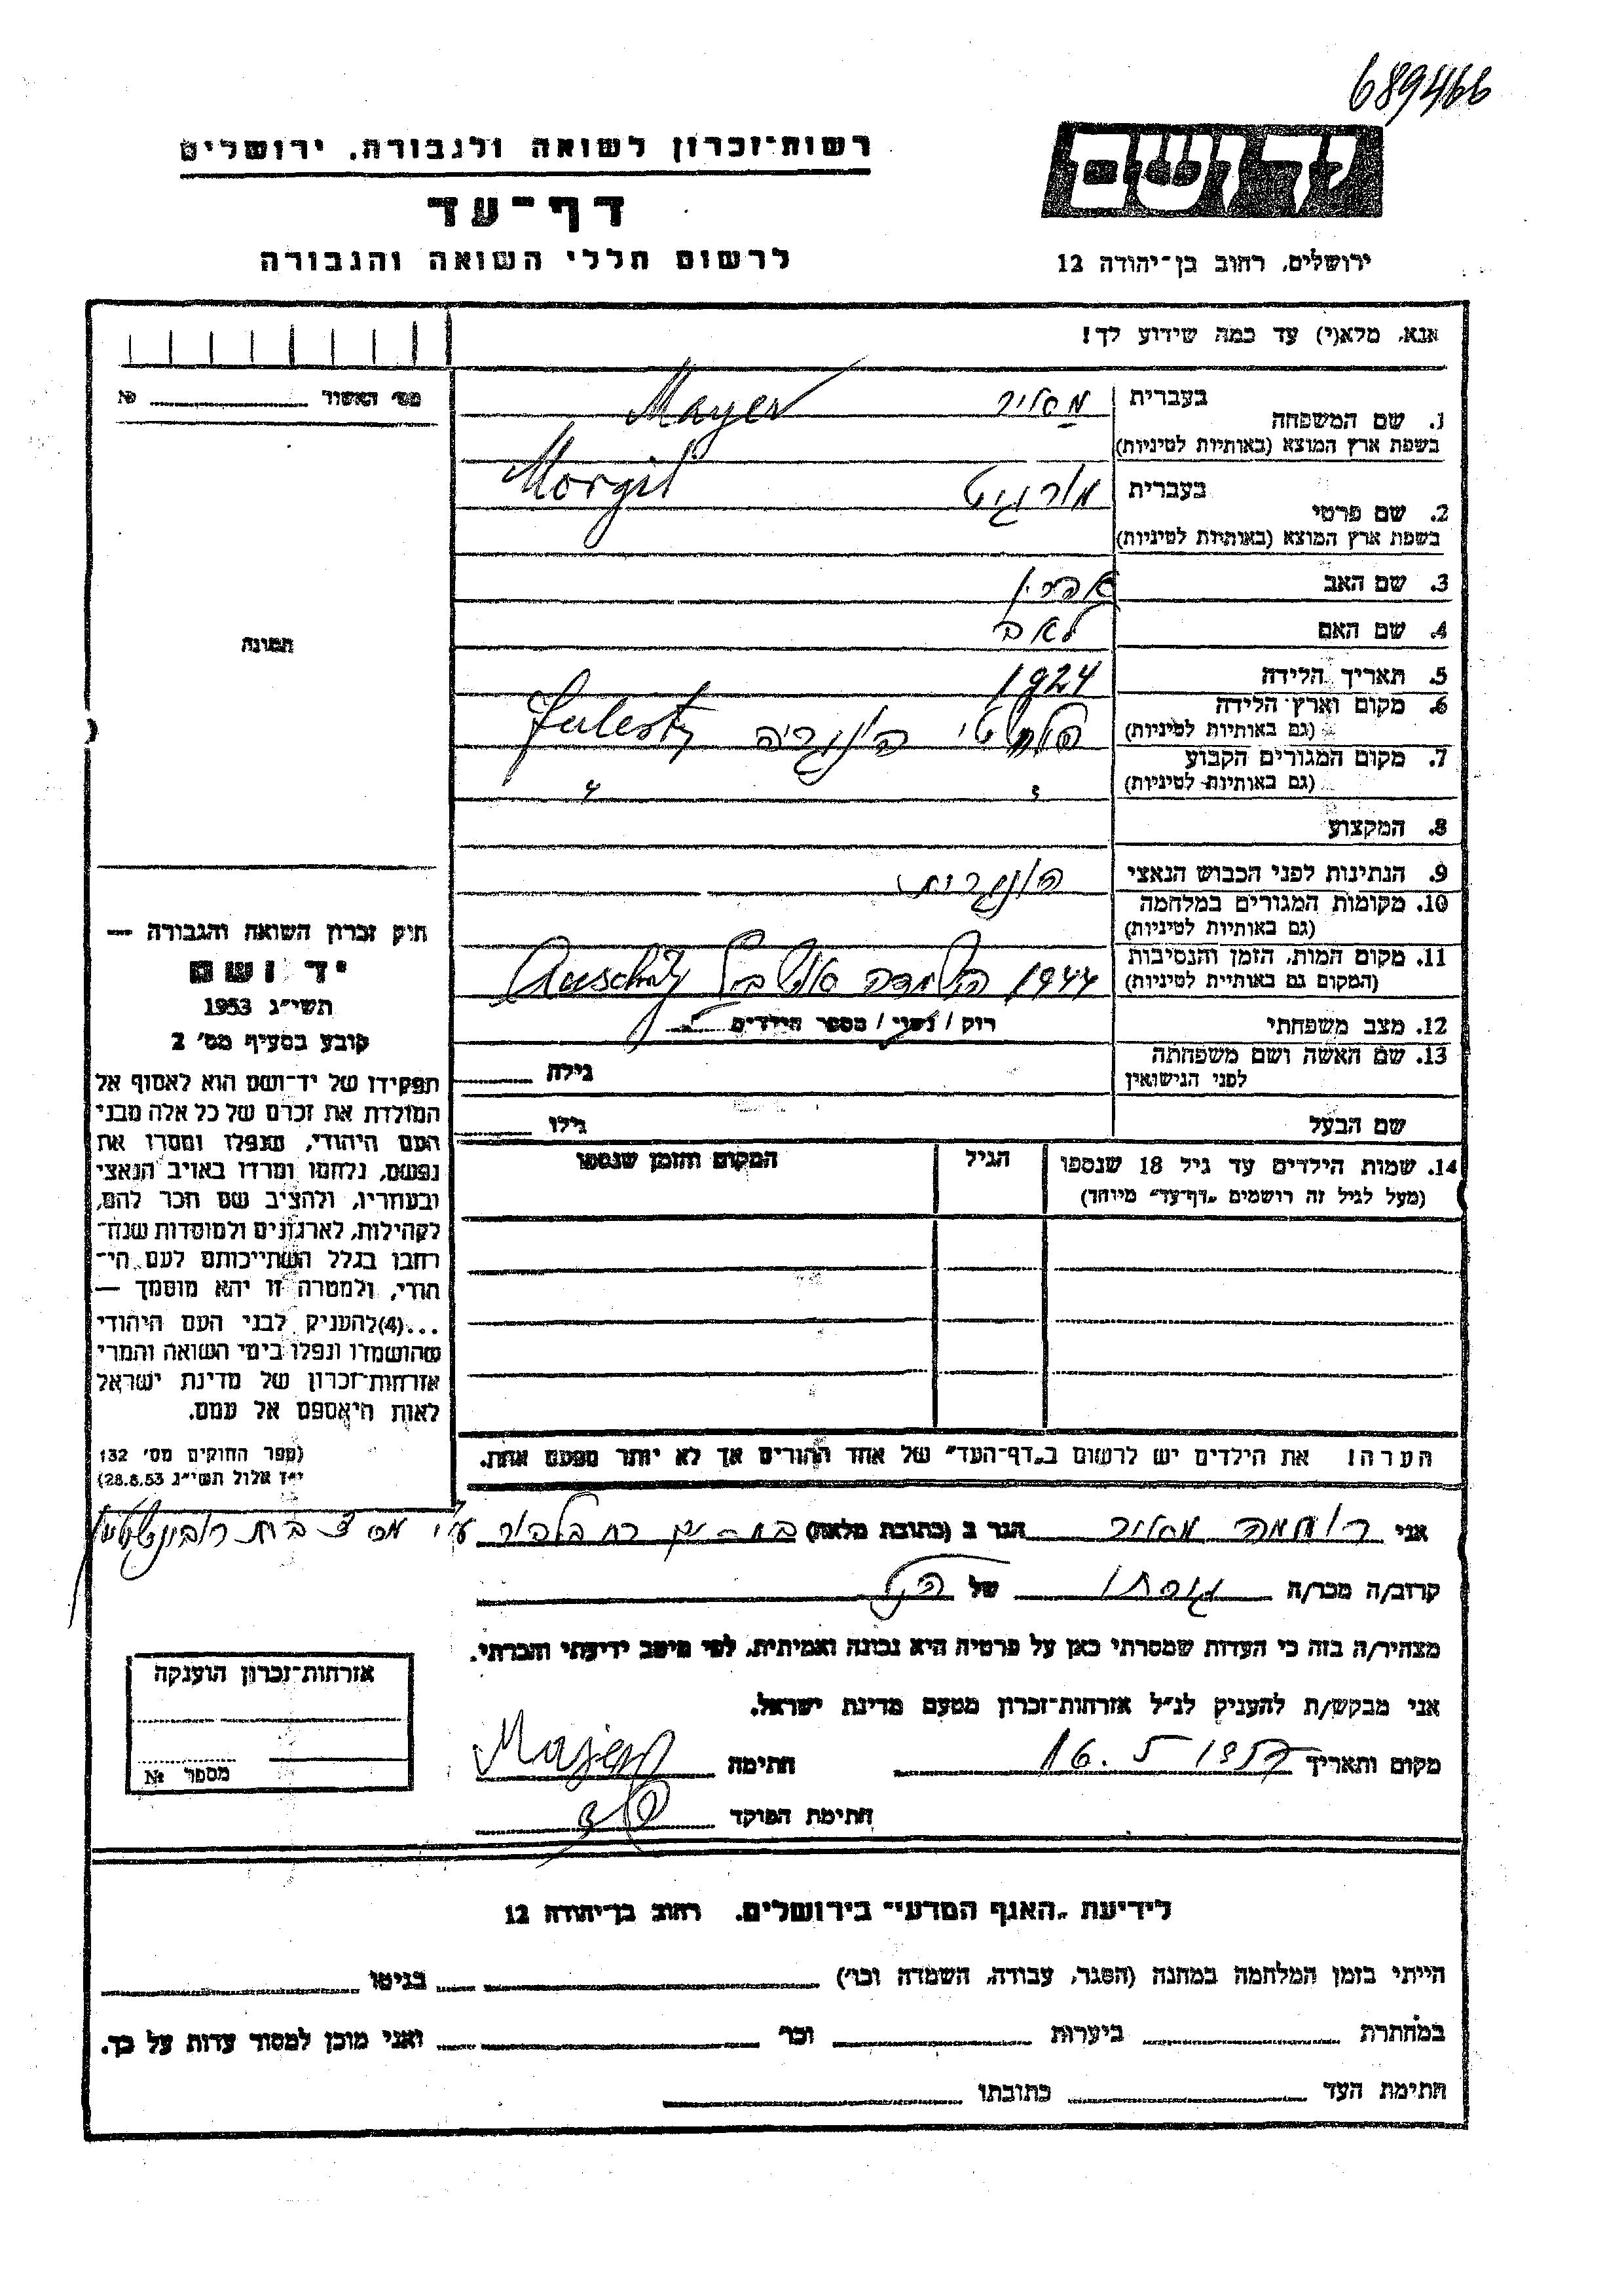 689466
רשות־זכרון לשואה ולגבורה, ירושלים
יד ושם
דף־עד
לרשום חללי השואה והגבורה
ירושלים, רחוב בן־יהודה 12
אנא, מלא(י) עד כמה שידוע לך!
מס׳ האשור № 
תמונה
1. שם המשפחה בעברית מאיר Mayer
בשפת ארץ המוצא (באותיות לטיניות)
2. שם פרטי בעברית מורגיט Morgit
בשפת ארץ המוצא (באותיות לטיניות)
3. שם האב
4. שם האם לאה
5. תאריך הלידה 1924
6. מקום וארץ הלידה הונגריה
(גם באותיות לטיניות)
7. מקום המגורים הקבוע
(גם באותיות לטיניות)
8. המקצוע
9. הנתינות לפני הכבוש הנאצי הונגרית
10. מקומות המגורים במלחמה
(גם באותיות לטיניות)
11. מקום המות, הזמן והנסיבות 1944
(המקום גם באותיות לטיניות)
12. מצב משפחתי רוק / נשוי / מספר הילדים
13. שם האשה ושם משפחתה גילה
לפני הנישואין
שם הבעל גילו
14. שמות הילדים עד גיל 18 שנספו הגיל המקום והזמן שנספו
(מעל לגיל זה רושמים „דף־עד״ מיוחד)
הערה! את הילדים יש לרשום ב„דף־העד״ של אחד ההורים אך לא יותר מפעם אחת.
חוק זכרון השואה והגבורה —
יד ושם
תשי״ג 1953
קובע בסעיף מס׳ 2
תפקידו של יד־ושם הוא לאסוף אל
המולדת את זכרם של כל אלה מבני
העם היהודי, שנפלו ומסרו את
נפשם, נלחמו ומרדו באויב הנאצי
ובעוזריו, ולהציב שם וזכר להם,
לקהילות, לארגונים ולמוסדות שנח־
רבו בגלל השתייכותם לעם הי־
הודי, ולמטרה זו יהא מוסמך —
...(4)להעניק לבני העם היהודי
שהושמדו ונפלו בימי השואה והמרי
אזרחות־זכרון של מדינת ישראל
לאות היאספם אל עמם.
(ספר החוקים מס׳ 132
י״ז אלול תשי״ג 28.8.53)
אני מאיר הגר ב (כתובת מלאה)
קרוב/ה מכר/ה גיסתו של הנ״ל
מצהיר/ה בזה כי העדות שמסרתי כאן על פרטיה היא נכונה ואמיתית, לפי מיטב ידיעתי והכרתי.
אני מבקש/ת להעניק לנ״ל אזרחות־זכרון מטעם מדינת ישראל.
מקום ותאריך 16.5.1957 חתימה
חתימת הפוקד
אזרחות־זכרון הוענקה
מספר №
לידיעת „האגף המדעי״ בירושלים, רחוב בן־יהודה 12
הייתי בזמן המלחמה במחנה (הסגר, עבודה, השמדה וכו׳) בגיטו
במחתרת ביערות וכו׳ ואני מוכן למסור עדות על כך.
חתימת העד כתובתו